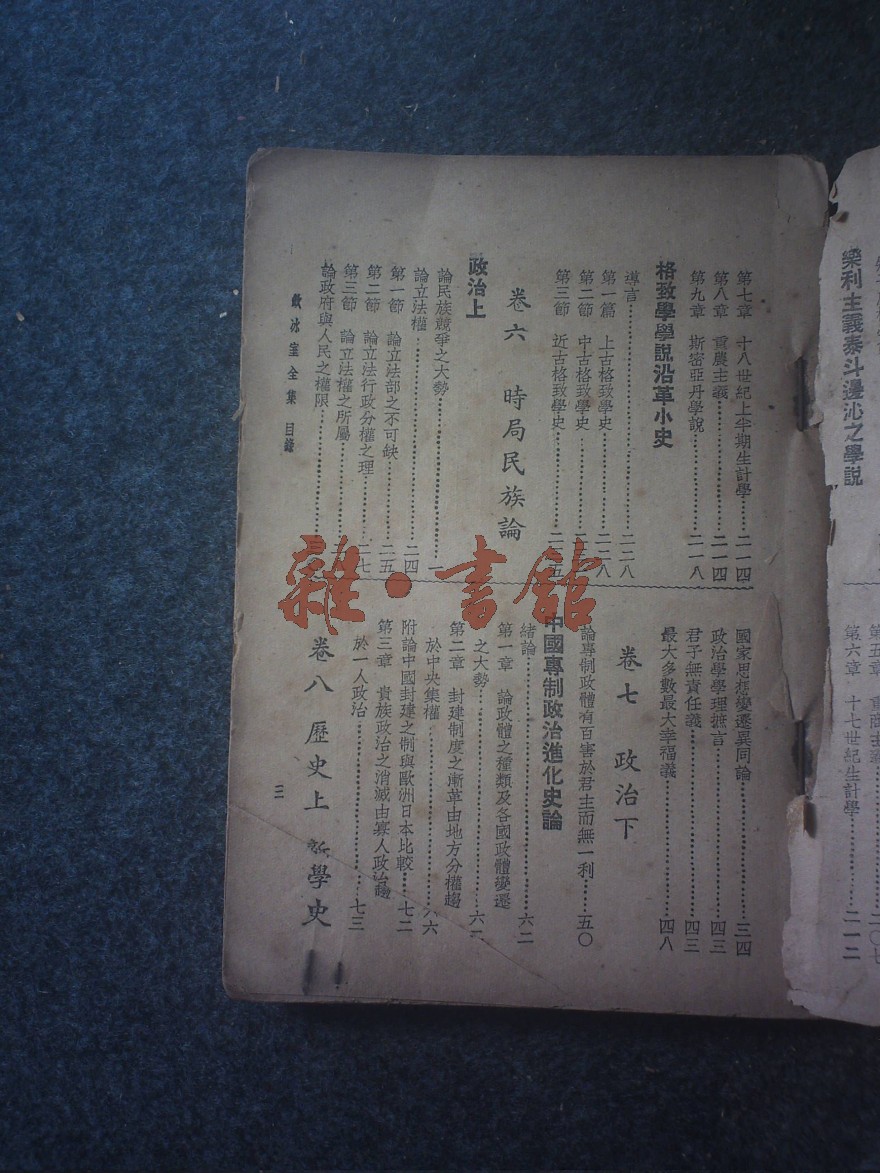 樂利主義泰斗邊沁之學說
第六章 十七世紀生計學 二一二
第七章 十八世紀上半期生計學 二一四
第八章 重農主義 二一四
第九章 斯密亞丹學說 二一八
格致學學說沿革小史
導言 二二八
第一篇 上古格致學史 二二八
第二節 中古格致學史
第三節 近古格致學史
卷六 時局民族論
政治上
論民族競爭之大勢 一
論立法權 二四
第一節 論立法部之不可缺 二五
第二節 論立法行政分權之理 二七
第三節 論立法權之所屬
論政府與人民之權限
國家思想變遷異同論 三四
政治學學理摭言 四三
君子無責任義 四三
最大多數最大幸福義 四八
卷七 政治下
論專制政體有百害於君主而無一利 五〇
中國專制政治進化史論
緒論 六二
第一章 論政體之種類及各國政體變遷
之大勢 六二
第二章 封建制度之漸革由地方分權趨
於中央集權 六六
附論中國封建之制與歐洲日本比較 七二
第三章 貴族政治之消滅由寡人政治趨
於一人政治 七三
卷八 歷史上 新學史
飲冰室全集 目錄
三
雜·書館